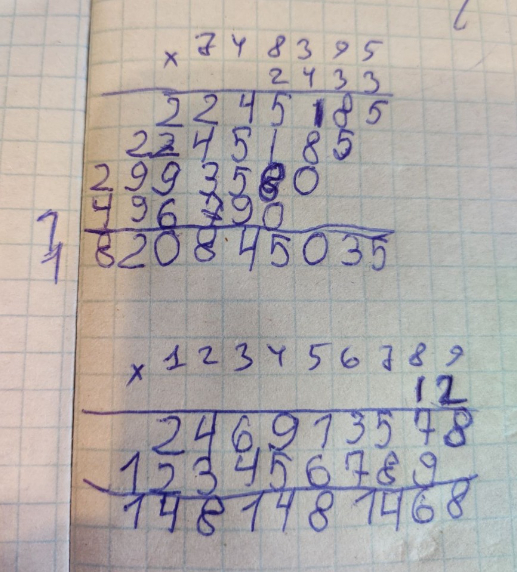 × 7 4 8 3 9 5
2 4 3 3
2 2 4 5 1 8 5
2 2 4 5 1 8 5
2 9 9 3 5 8 0
1 4 9 6 7 9 0
1 8 2 0 8 4 5 0 3 5
× 1 2 3 4 5 6 7 8 9
1 2
2 4 6 9 1 3 5 7 8
1 2 3 4 5 6 7 8 9
1 4 8 1 4 8 1 4 6 8